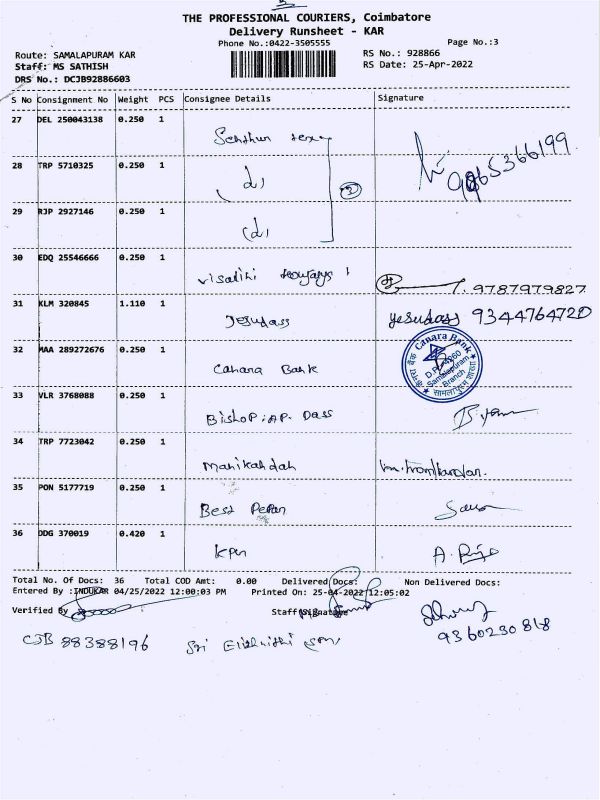 THE PROFESSIONAL COURIERS, Coimbatore
Delivery Runsheet - KAR
Phone No.:0422-3505555 Page No.:3
Route: SAMALAPURAM KAR RS No.: 928866
Staff: MS SATHISH RS Date: 25-Apr-2022
DRS No.: DCJB92886603
S No Consignment No Weight PCS Consignee Details Signature
27 DEL 250043138 0.250 1
28 TRP 5710325 0.250 1 (d)
29 RJP 2927146 0.250 1 (d)
30 EDQ 25546666 0.250 1 9787979827
31 KLM 320845 1.110 1 Jesudass yesudass 9344764720
32 MAA 289272676 0.250 1 Canara Bank Canara Bank Samalapuram Branch
33 VLR 3768088 0.250 1 Bishop. AP. Dass
34 TRP 7723042 0.250 1 Manikandan
35 PON 5177719 0.250 1 Best
36 DDG 370019 0.420 1 KPN
Total No. Of Docs: 36 Total COD Amt: 0.00 Delivered Docs: Non Delivered Docs:
Entered By :INDUKAR 04/25/2022 12:00:03 PM Printed On: 25-04-2022 12:05:02
Verified By Staff Signature
9360230818
CJB 88388196 Sri